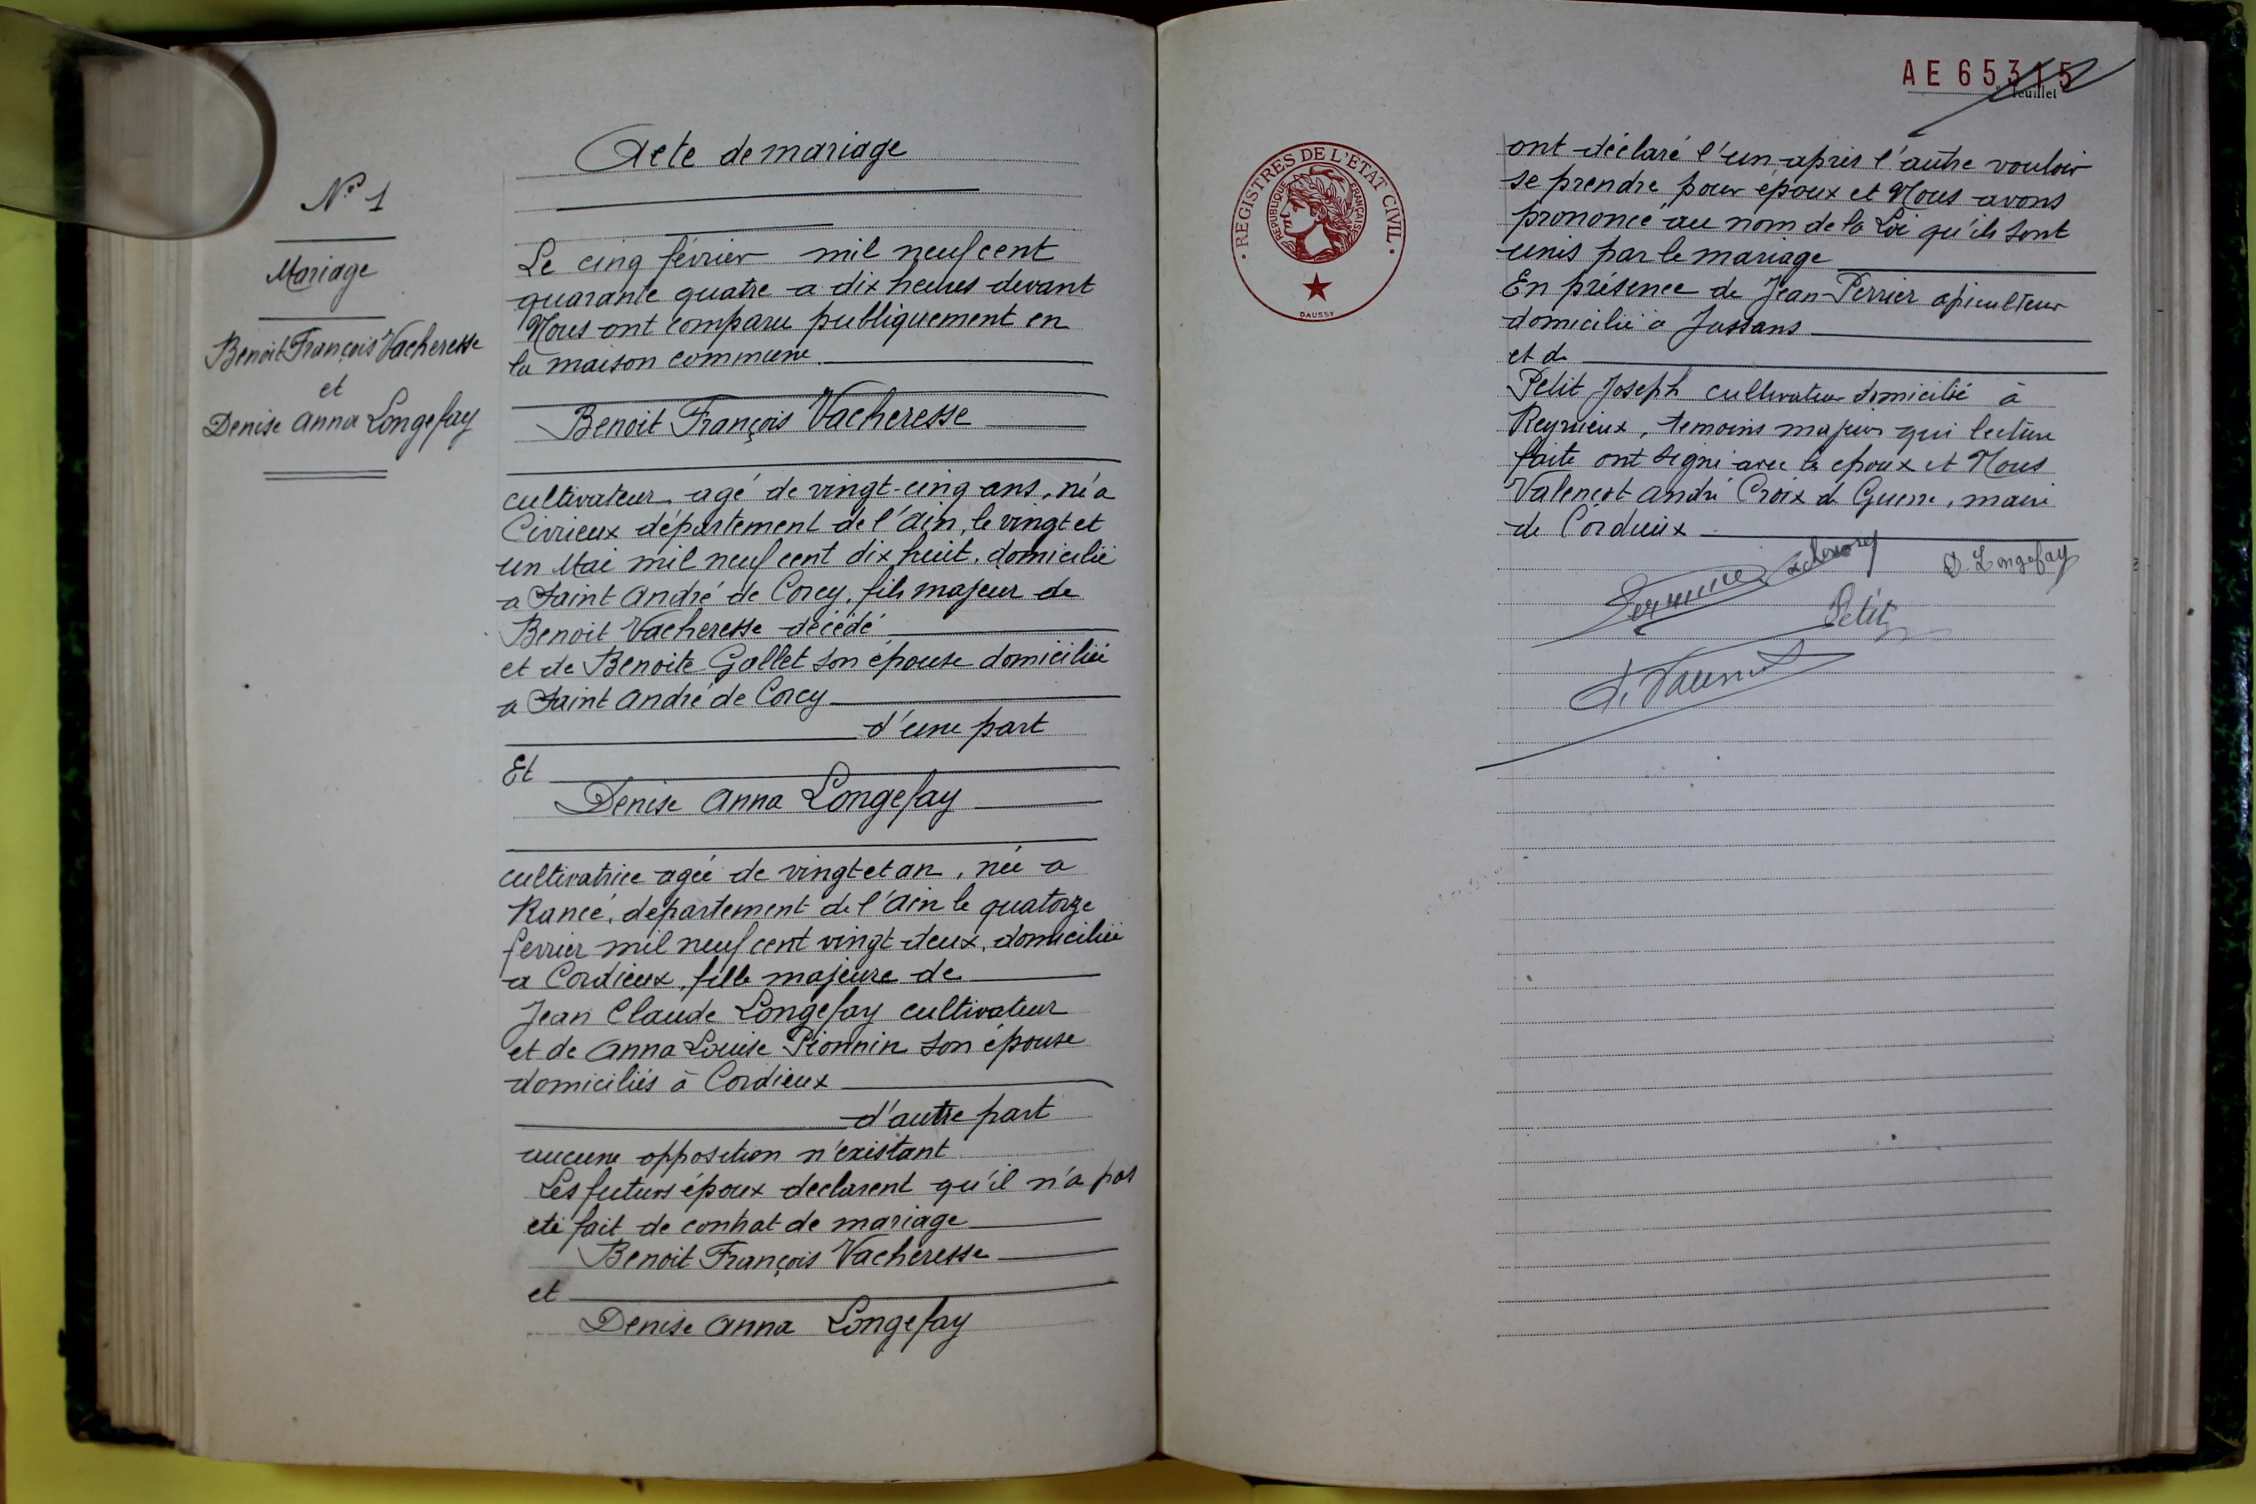 Acte de mariage
N° 1
Mariage
Benoit François Vacheresse
et
Denise Anna Longefay
Le cinq février mil neuf cent
quarante quatre a dix heures devant
Nous ont comparu publiquement en
la maison commune
Benoit François Vacheresse
cultivateur agé de vingt-cinq ans, né a
Civrieux département de l'Ain, le vingt et
un Mai mil neuf cent dix huit, domicilié
a Saint André de Corcy, fils majeur de
Benoit Vacheresse décédé
et de Benoite Gallet son épouse domiciliée
a Saint André de Corcy
d'une part
Et
Denise Anna Longefay
cultivatrice agée de vingt et an, née a
Rancé, département de l'Ain le quatorze
fevrier mil neuf cent vingt deux, domiciliée
a Cordieux, fille majeure de
Jean Claude Longefay cultivateur
et de Anna Louise Pionnin son épouse
domiciliés à Cordieux
d'autre part
aucune opposition n'existant
Les futurs époux declarent qu'il n'a pas
eté fait de contrat de mariage
Benoit François Vacheresse
et
Denise Anna Longefay
AE 65315
feuillet
REGISTRES DE L'ETAT CIVIL
REPUBLIQUE FRANÇAISE
DAUSSY
ont déclaré l'un après l'autre vouloir
se prendre pour époux et Nous avons
prononcé au nom de la Loi qu'ils sont
unis par le mariage
En présence de Jean Perrier apiculteur
domicilié a Jassans
et de
Petit Joseph cultivateur domicilié à
Reyrieux, temoins majeurs qui lecture
faite ont signé avec les epoux et Nous
Valencot André Croix de Guerre, maire
de Cordieux
D. Longefay
Petit